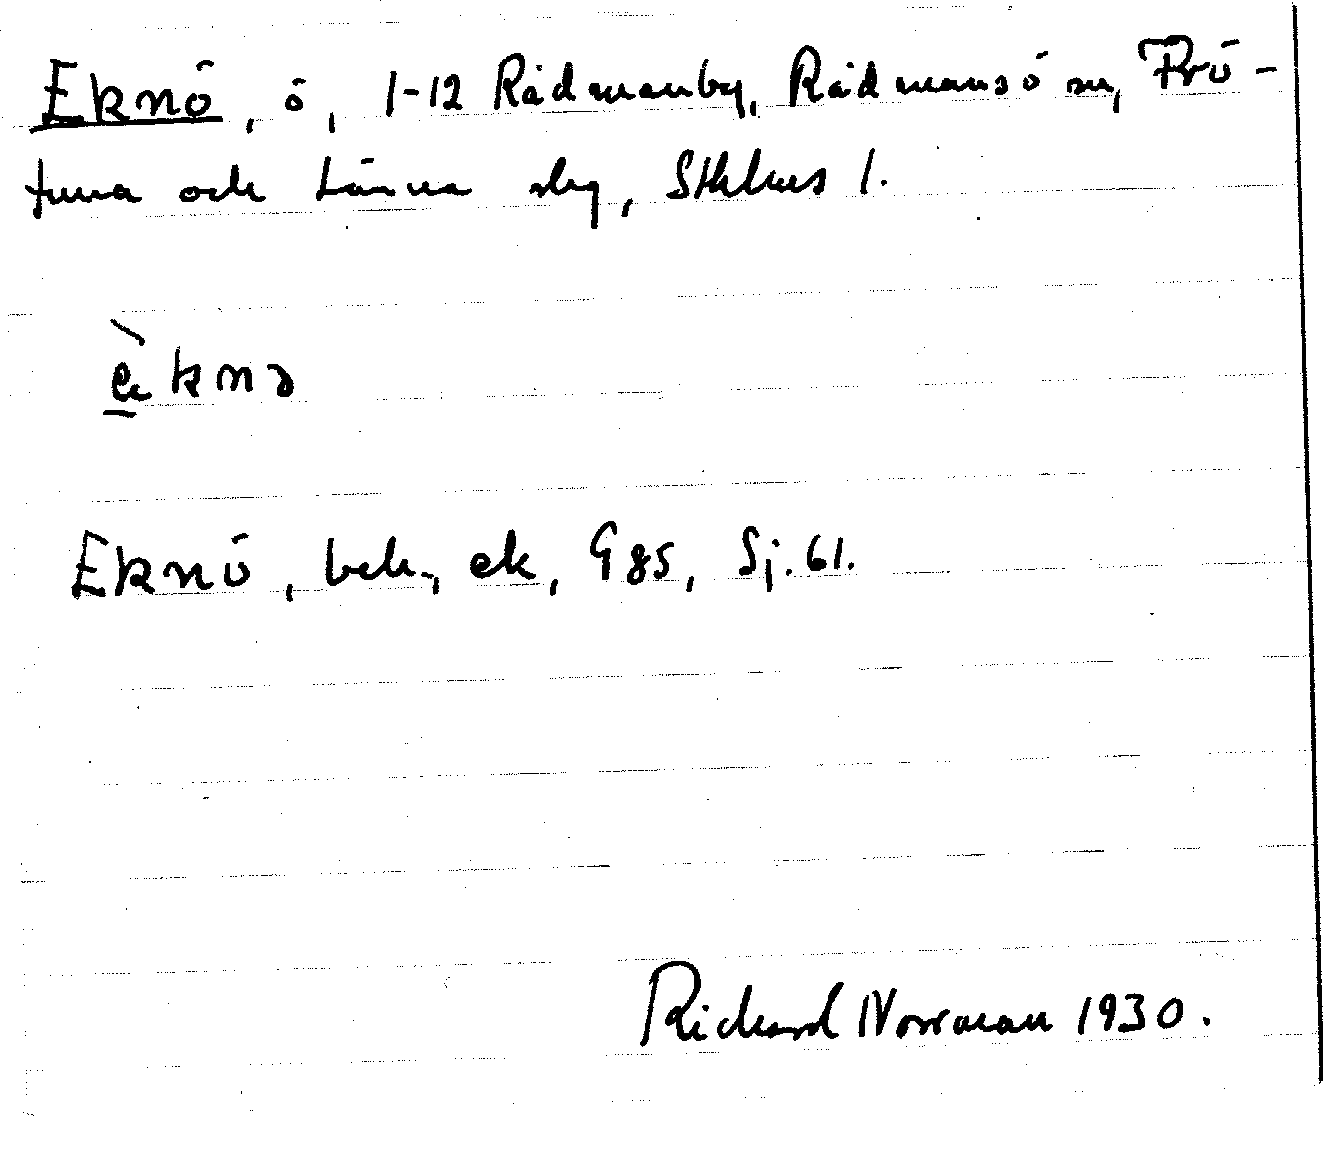 Eknö, ö, 1-12 Rådmanby, Rådmansö sn, Frö-
tuna och Länna slg, Sthlms l.
èknə
Eknö, beb., ek, Ggs, Sj. 61.
Richard Norrman 1930.